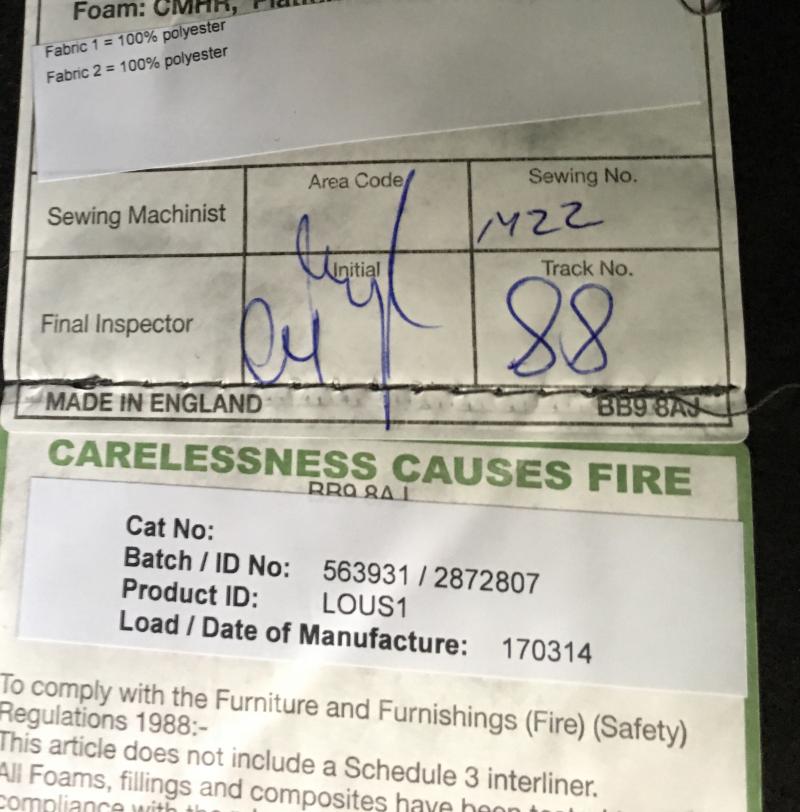 Foam: CMHR,
Fabric 1 = 100% polyester
Fabric 2 = 100% polyester
Area Code
Sewing No.
Sewing Machinist
M22
Initial
Track No.
Final Inspector
88
MADE IN ENGLAND
BB9 8AJ
CARELESSNESS CAUSES FIRE
BB9 8AJ
Cat No:
Batch / ID No: 563931 / 2872807
Product ID: LOUS1
Load / Date of Manufacture: 170314
To comply with the Furniture and Furnishings (Fire) (Safety)
Regulations 1988:-
This article does not include a Schedule 3 interliner.
All Foams, fillings and composites have been
compliance with